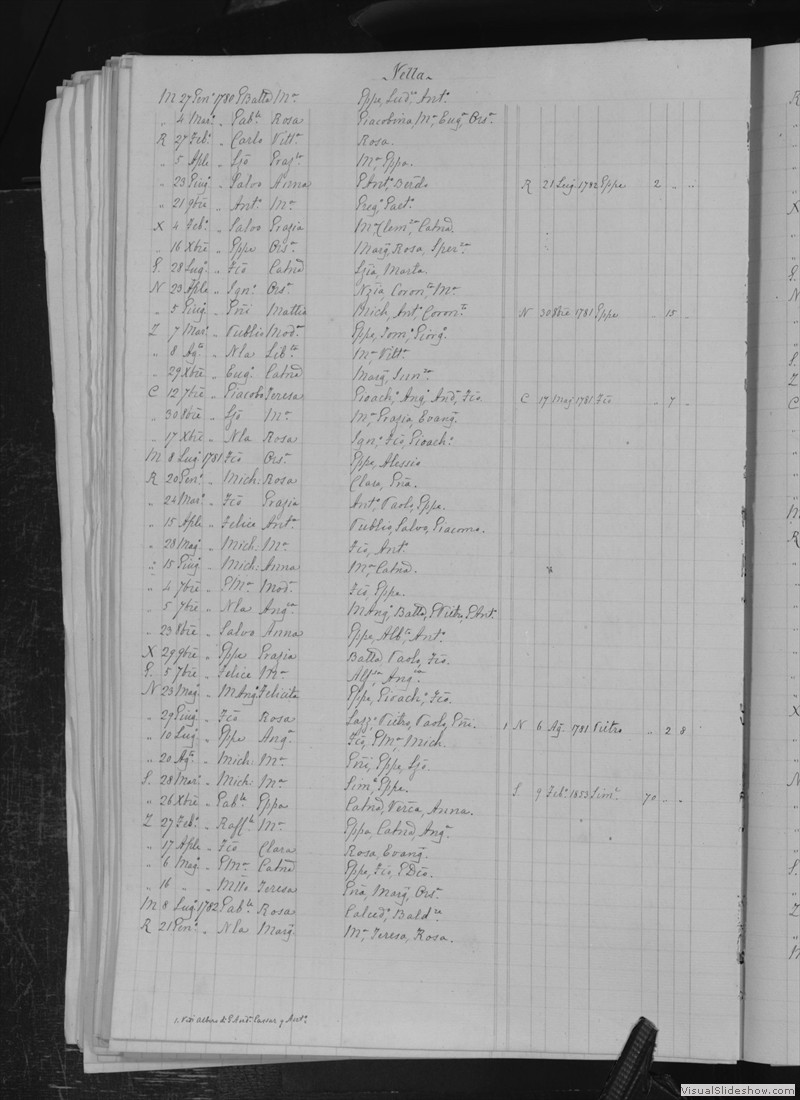 Vella
M 27 Genº 1780 GBatta Mª Gppa, Lud.ª Antª
" 4 Marº " Gab.la Rosa Giacobina, Mª Eug.ª Ors.ª
R 27 Feb.º " Carlo Vitt.ª Rosa.
" 5 Aple " Ljõ Graz.la Mª Gppa.
" 23 Giugº " Salvo Anna G Ant.º Berdº R 21 Lugº 1782 Gppa 2 " "
" 21 9bre " Ant.º Mª Greg.º Gaet.º
X 4 Feb.º " Salvo Grazia Mª Clem.za Catnã
" 16 Xbre " Gppe Ors.ª Margª Rosa, Sper.za
G. 28 Lug.º " Fcõ Catnã Ljia, Marta.
N 23 Aple " Ign.º Ors.ª Nzia Coron.ta Mª
" 5 Giug.º " Gnñi Mattia Mich, Ant.º Coron.ta N 30 8bre 1781 Gppe " 15 "
Z 7 Mar.º " Publio Mod.ª Gppe, Tom.º Giorg.º
" 8 Ag.to " Nla Lib.ta Mª Vitt.ª
" 29 Xbre " Eug.º Catnã Margª
C 12 7bre " Giacobo Teresa Gioach.º Ang.º And.ª Fcõ C 17 Mag 1781 Fcõ " 7 "
" 30 8bre " Ljõ Mª Mª Grazia, Evang.
" 17 Xbre " Nla Rosa Ign.º Fcõ, Gioach.º
M 8 Lug.º 1781 Fcõ Ors.ª Gppe, Alessio
R 20 Gen.º " Mich: Rosa Clara, Gnña.
" 24 Mar.º " Fcõ Grazia Ant.º Paolo, Gppe.
" 15 Aple " Felice Ant.ª Publio, Salvo, Giacomo.
" 28 Mag.º " Mich: Mª Fcõ, Ant.º
" 15 Giug.º " Mich: Anna Mª Catnã.
" 4 7bre " GMª Mod.ª Fcõ, Gppa.
" 5 7bre " Nla Ang.ca MAng.º Batta, GPietro, GAnt.
" 23 8bre " Salvo Anna Gppe, Alb.to Ant.º
X 29 9bre " Gppe Grazia Batta Paolo, Fcõ.
G. 5 7bre " Felice Mª Alf.sa Ang.ca
N 23 Mag.º " MAng.º Felicita Gppe, Gioach.º Fcõ.
" 29 Giug.º " Fcõ Rosa Lazz.º Pietro, Paolo, Gnñi. 1 N 6 Ag. 1781 Pietro " 2 8
" 10 Lug.º " Gppe Ang.ª Fcõ, GMª Mich.
" 20 Ag.to " Mich: Mª Gnñi, Gppe, Ljõ.
S. 28 Mar.º " Mich: Mª Sim.ª Gppa. S 9 Feb.º 1853 Sim.ª 70 " "
" 26 Xbre " Gab.le Gppa Catnã, Verca, Anna.
Z 27 Feb.º " Raff.le Mª Gppa, Catnã, Ang.ª
" 17 Aple " Fcõ Clara Rosa, Evang.
" 6 Mag.º " GMª Catnã Gppe, Fcõ, GDcõ.
" 16 " " Mtto Teresa Gnña, Margª Ors.ª
M 8 Lug.º 1782 Gab.le Rosa Calced.º Bald.re
R 21 Gen.º " Nla Margª Mª Teresa, Rosa.
1. Vidi Albero di G And.ª Cassar q Ant.º
VisualSlideshow.com